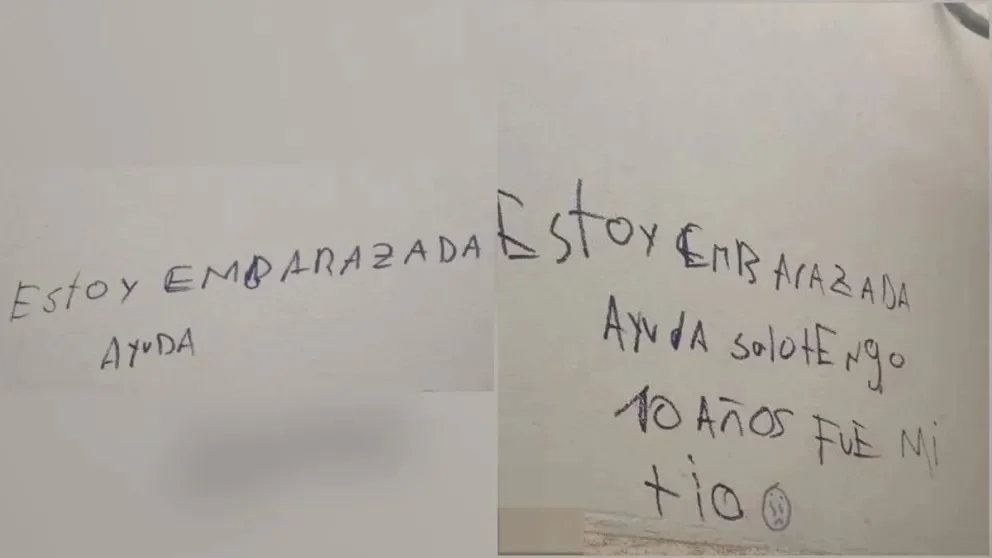 Estoy EMBARAZADA
AYUDA
Estoy EMBARAZADA
AYUdA solo tENgo
10 AÑOS FUE Mi
tio